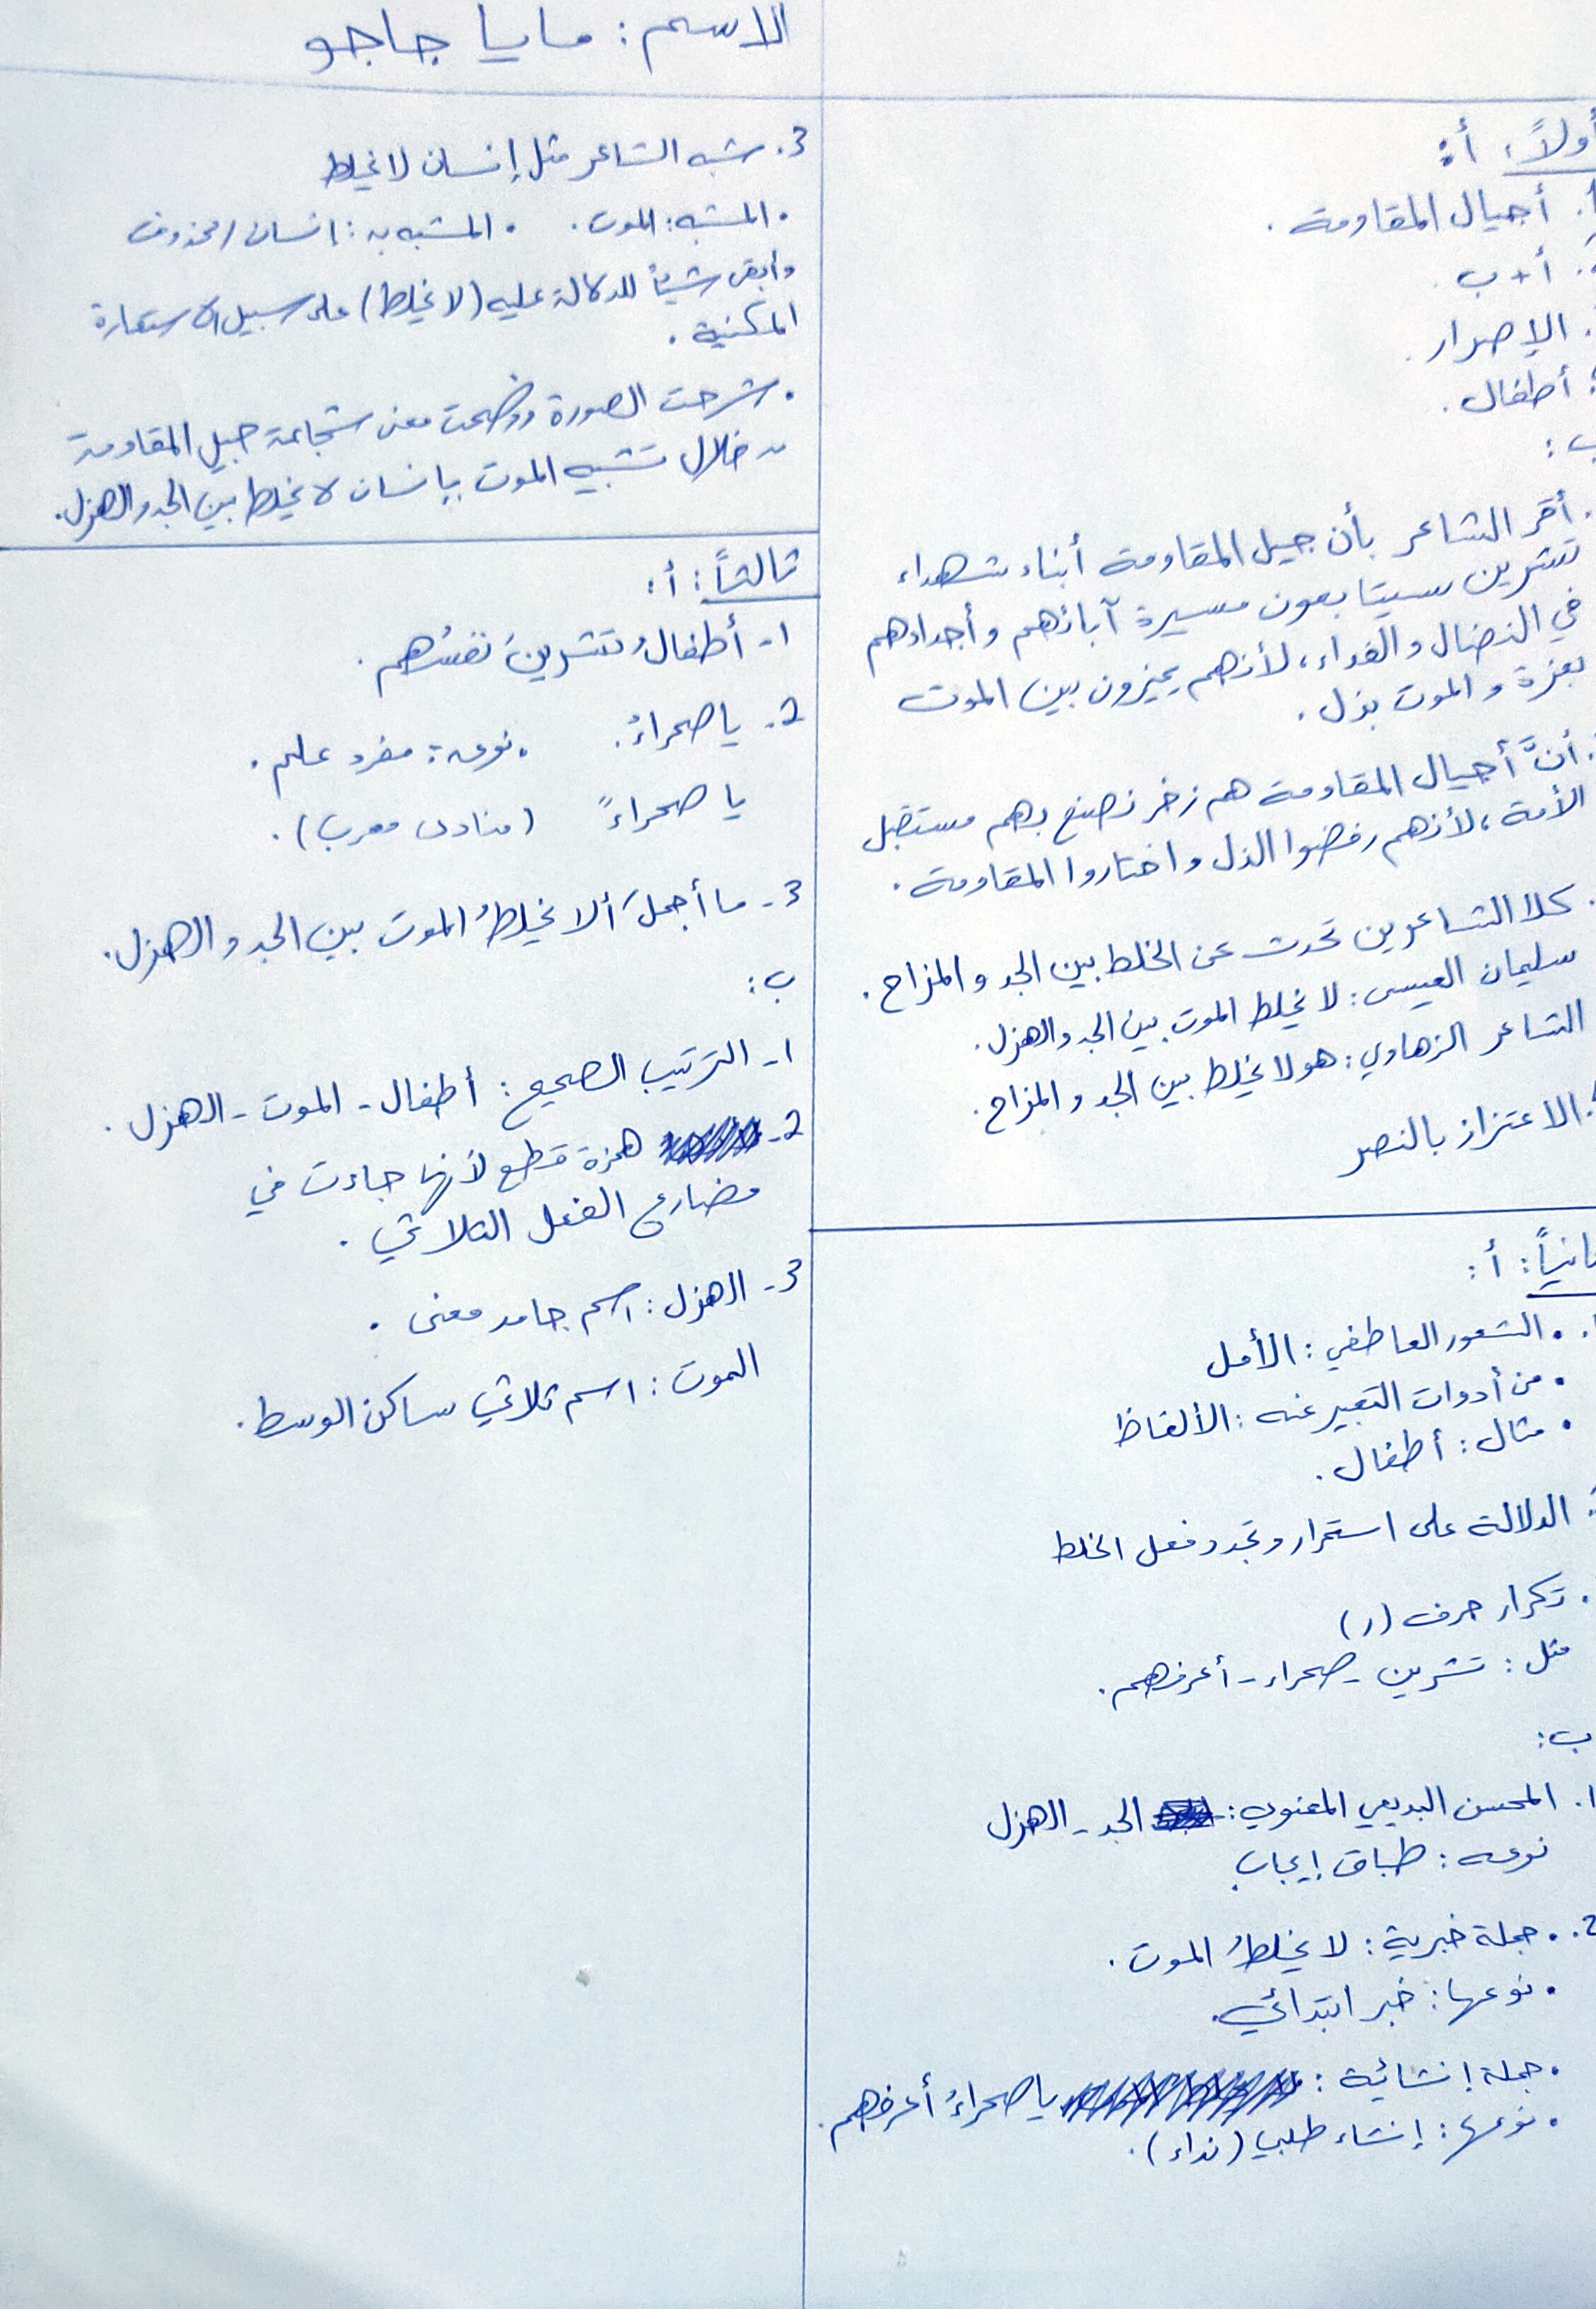 الاسم : مايا جاجو
أولاً : أ :
أ. أجيال المقاومة .
. أ + ب .
. الإصرار .
: أطفال .
ب :
. أقر الشاعر بأن جيل المقاومة أبناء شهداء
تشرين سيتابعون مسيرة آبائهم وأجدادهم
في النضال والفداء ، لأنهم يميزون بين الموت
بعزة والموت بذل .
. أنَّ أجيال المقاومة هم زخر نصنع بهم مستقبل
الأمة ، لأنهم رفضوا الذل واختاروا المقاومة .
. كلا الشاعرين تحدث عن الخلط بين الجد والمزاح .
سليمان العيسى : لا يخلط الموت بين الجد والهزل .
الشاعر الزهاوي : هو لا يخلط بين الجد والمزاح .
. الاعتزاز بالنصر
انياً : أ :
1. • الشعور العاطفي : الأمل
• من أدوات التعبير عنه : الألفاظ
• مثال : أطفال .
: الدلالة على استمرار وتجدد فعل الخلط
. تكرار حرف (ر)
مثل : تشرين - صحراء - أعرفهم .
ب :
1. المحسن البديعي المعنوي : الجد - الهزل
نوعه : طباق إيجاب
2. • جملة خبرية : لا يخلطُ الموت .
• نوعها : خبر ابتدائي .
• جملة إنشائية : يا صحراءُ أعرفهم .
• نوعها : إنشاء طلبي (نداء) .
3. شبه الشاعر مثل إنسان لا يخلط
• المشبه : الموت . • المشبه به : انسان / محذوف
وابقى شيئاً للدلالة عليه (لا يخلط) على سبيل الاستعارة
المكنية .
• شرحت الصورة ووضحت معنى شجاعة جيل المقاومة
من خلال تشبيه الموت بإنسان لا يخلط بين الجد والهزل .
ثالثاً : أ :
1- أطفالُ تشرينَ نفسُهم .
2- يا صحراءُ . • نوعه : مفرد علم .
يا صحراءً (منادى معرب) .
3- ما أجملَ ألا يخلطُ الموت بين الجد والهزل .
ب :
1- الترتيب الصحيح : أطفال - الموت - الهزل .
2- همزة قطع لأنها جاءت في
مضارع الفعل الثلاثي .
3- الهزل : اسم جامد معنى .
الموت : اسم ثلاثي ساكن الوسط .